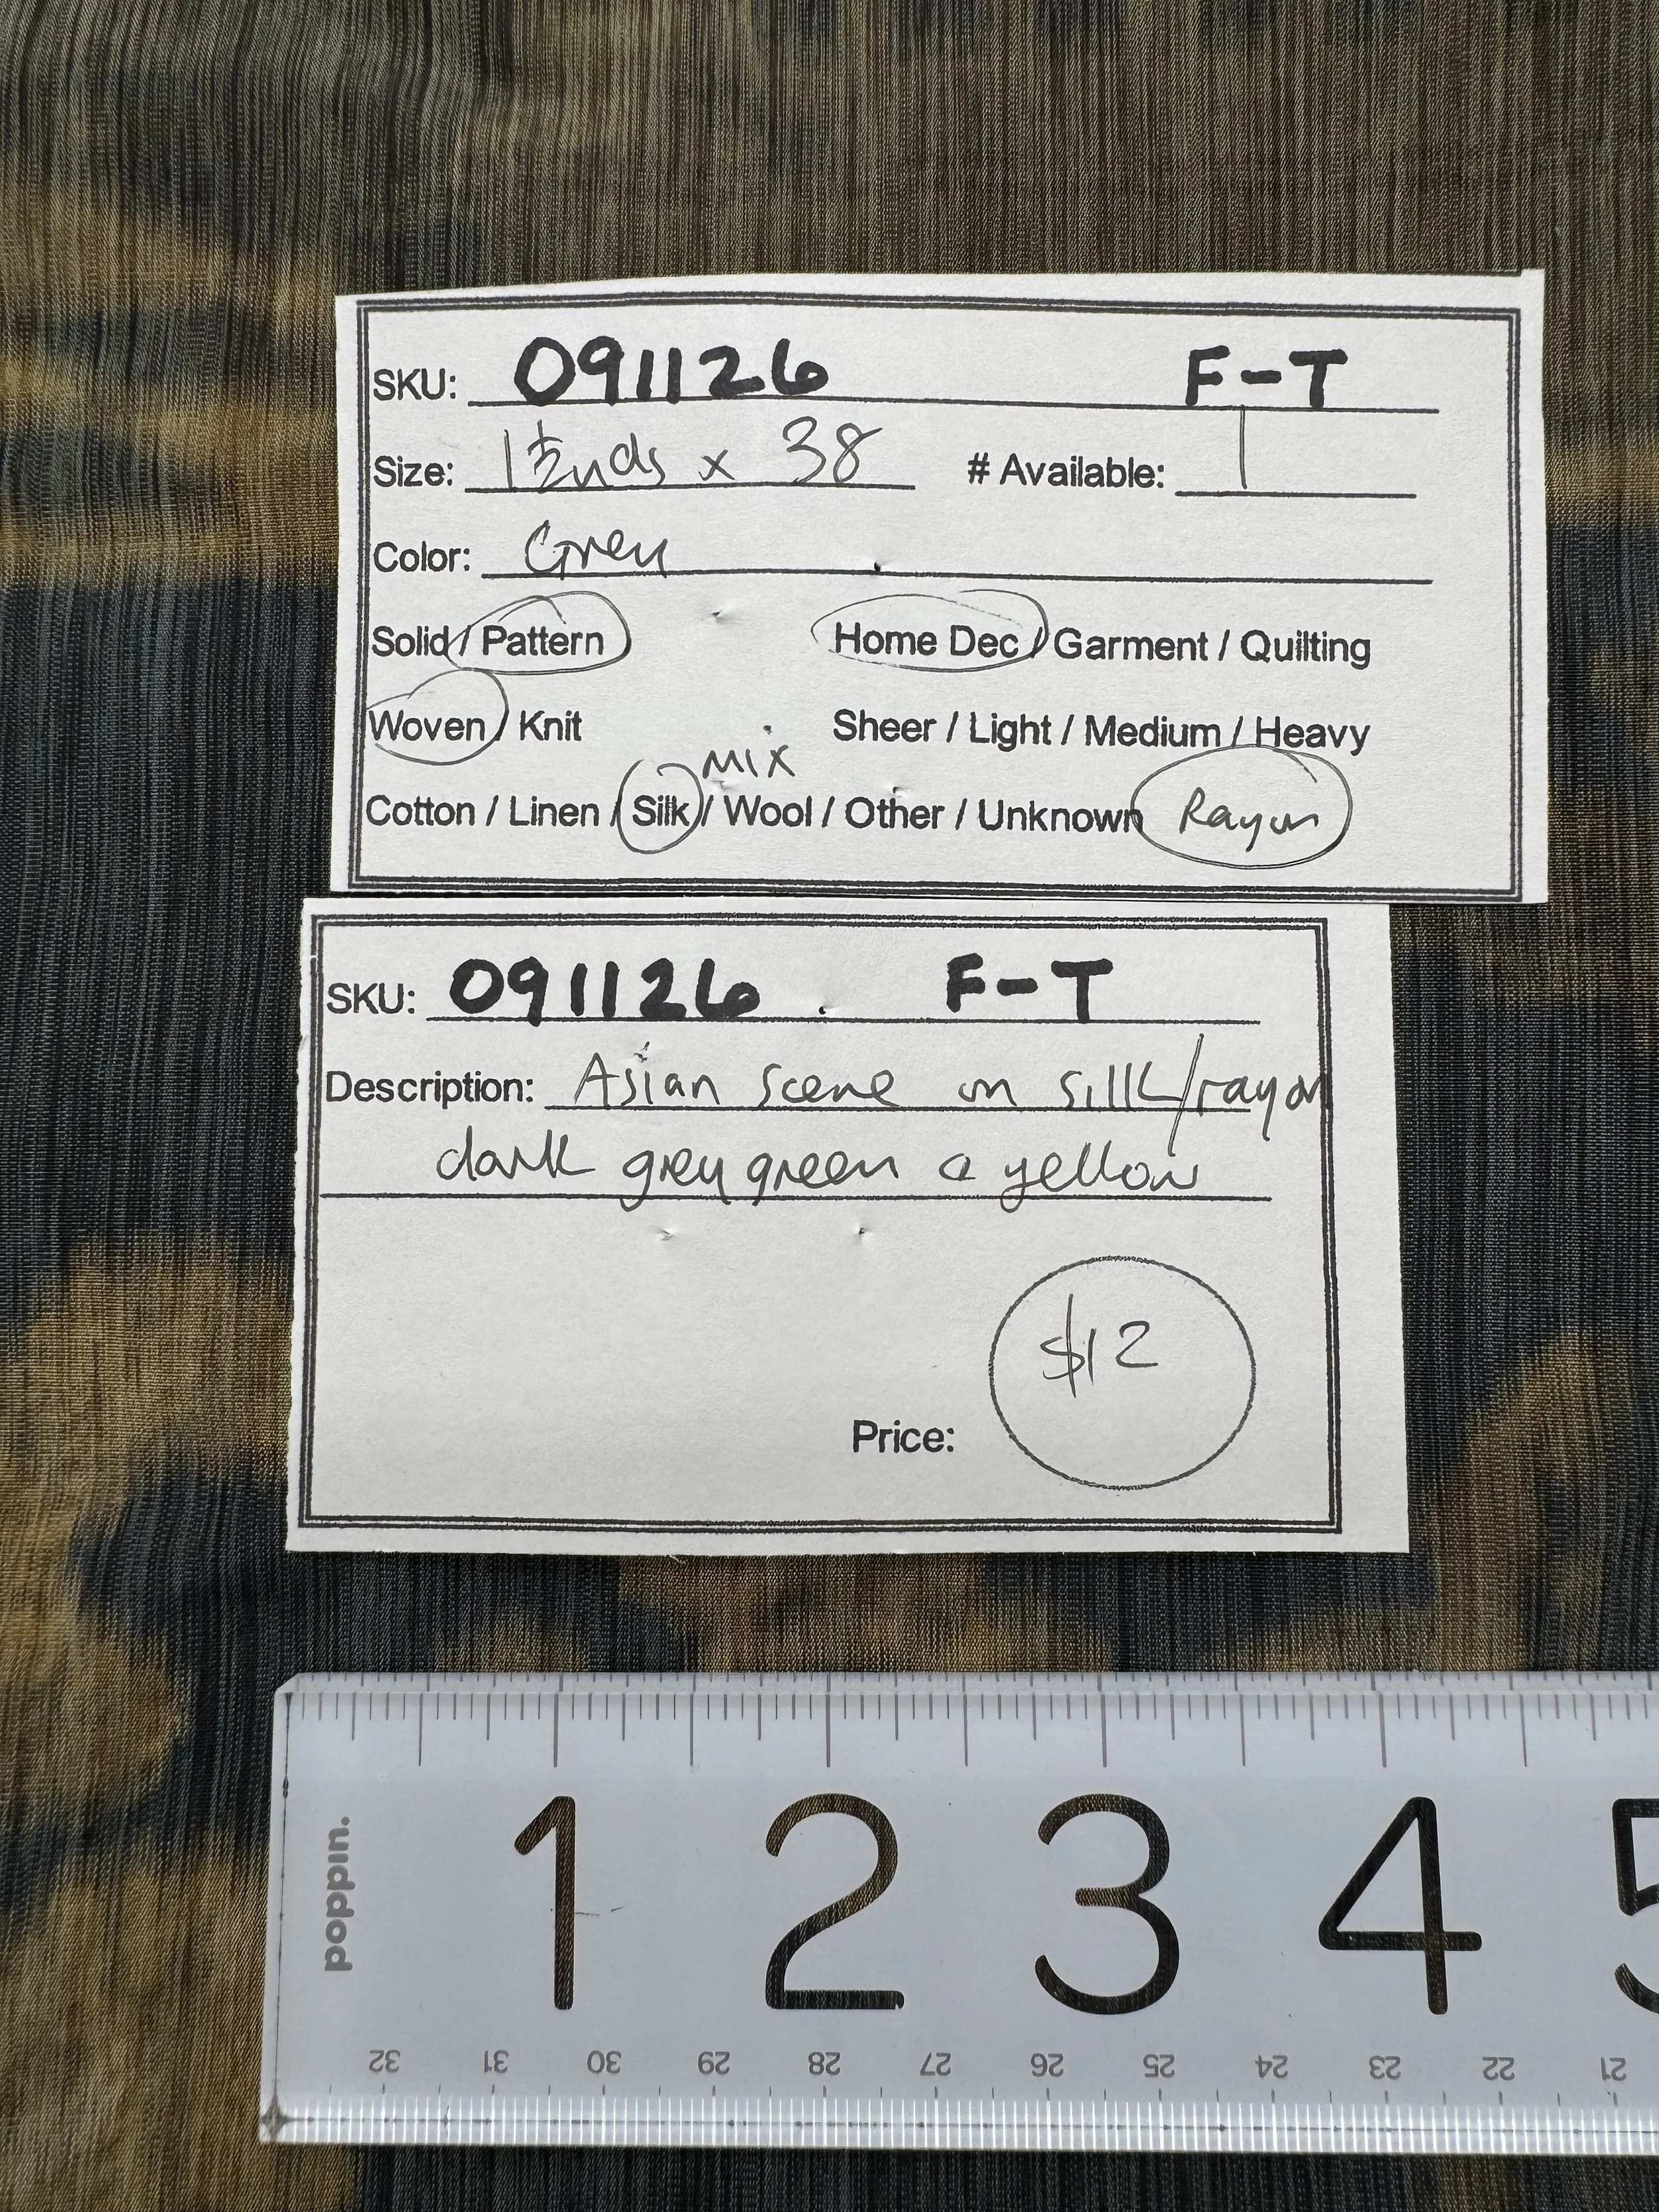 SKU: 091126 F-T
Size: 1½ yds x 38 # Available: 1
Color: Grey
Solid / Pattern Home Dec / Garment / Quilting
Woven / Knit Sheer / Light / Medium / Heavy
mix
Cotton / Linen / Silk / Wool / Other / Unknown Rayon
SKU: 091126 F-T
Description: Asian scene on silk/rayon
dark grey green & yellow
$12
Price:
poppin.
1 2 3 4 5
32 31 30 29 28 27 26 25 24 23 22 21